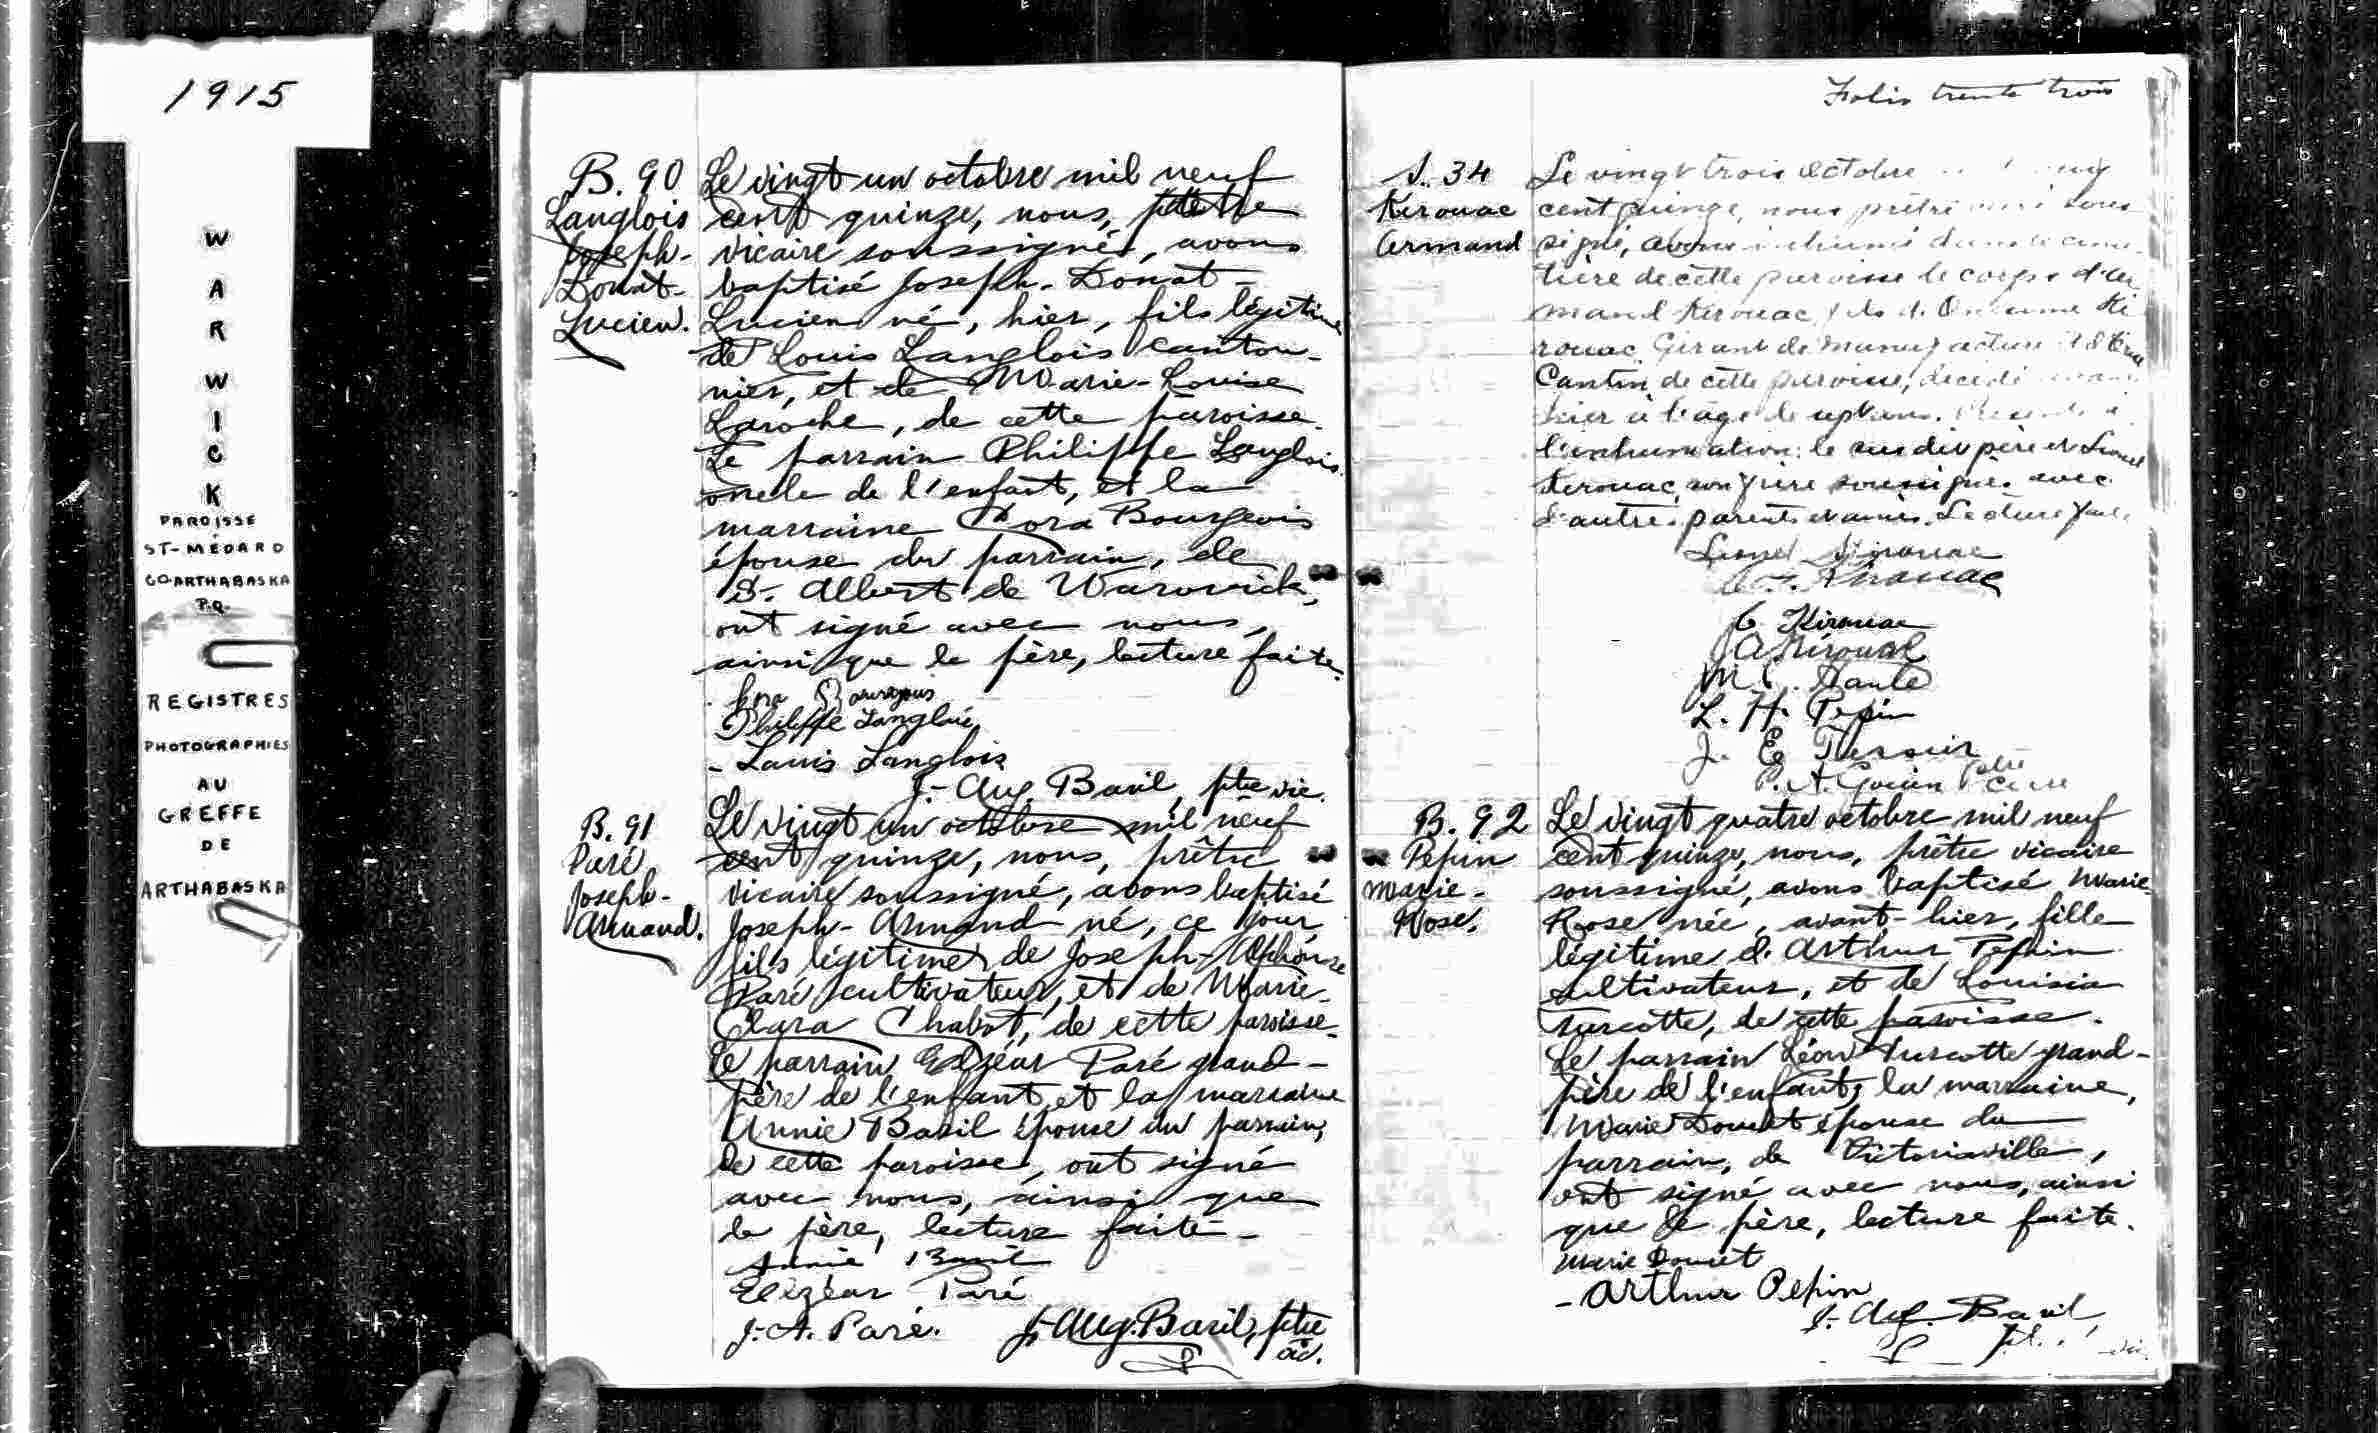 1915
WARWICK
PAROISSE
ST-MÉDARD
CO. ARTHABASKA
P.Q.
REGISTRES
PHOTOGRAPHIES
AU
GREFFE
DE
ARTHABASKA
B. 90
Langlois
Joseph-
Donat-
Lucien.
Le vingt un octobre mil neuf
cent quinze, nous, ptre
vicaire soussigné, avons
baptisé Joseph-Donat-
Lucien né, hier, fils légitime
de Louis Langlois canton-
nier, et de Marie-Louise
Laroche, de cette paroisse.
Le parrain Philippe Langlois
oncle de l'enfant, et la
marraine Cora Bourgeois
épouse du parrain, de
St. Albert de Warwick,
ont signé avec nous,
ainsi que le père, lecture faite.
Cora Bourgeois
Philippe Langlois
- Louis Langlois
J.-Aug. Baril, ptre vic.
B. 91
Paré
Joseph-
Armand.
Le vingt un octobre mil neuf
cent quinze, nous, prêtre
vicaire soussigné, avons baptisé
Joseph-Armand né, ce jour,
fils légitime de Joseph-Alphonse
Paré cultivateur, et de Marie-
Clara Chabot, de cette paroisse.
Le parrain Elzéar Paré grand-
père de l'enfant, et la marraine
Annie Baril épouse du parrain,
de cette paroisse, ont signé
avec nous, ainsi que
le père, lecture faite-
Annie Baril
Elézéar Paré
J.-A. Paré. J.-Aug. Baril, ptre
vic.
Folio trente trois
S. 34
Kerouac
Armand
Le vingt trois octobre
cent quinze, nous prêtre curé sous
signé, avons inhumé dans le cime-
tière de cette paroisse le corps d'Ar
mand Kerouac, fils d' Ki
rouac Gérant de manufacture et d'
Cantin de cette paroisse, décédé avant
hier à l'âge de sept ans. Présents à
l'inhumation: le susdit père et Lionel
Kerouac, son frère soussignés avec
d'autres parents et amis. Lecture faite.
Lionel Kirouac
Kirouac
C. Kirouac
J A Kirouac
L. H. Pepin
J. E. Tessier
P. A. Ptre
Curé
B. 92
Pepin
Marie-
Rose.
Le vingt quatre octobre mil neuf
cent quinze, nous, prêtre vicaire
soussigné, avons baptisé Marie-
Rose née, avant-hier, fille
légitime d'Arthur Pepin
cultivateur, et de Louisia
Turcotte, de cette paroisse.
Le parrain Léon Turcotte grand-
père de l'enfant, la marraine,
Marie Doucet épouse du
parrain, de Victoriaville,
ont signé avec nous, ainsi
que le père, lecture faite.
Marie Doucet
- Arthur Pepin
J.-Aug. Baril,
pt. vic.